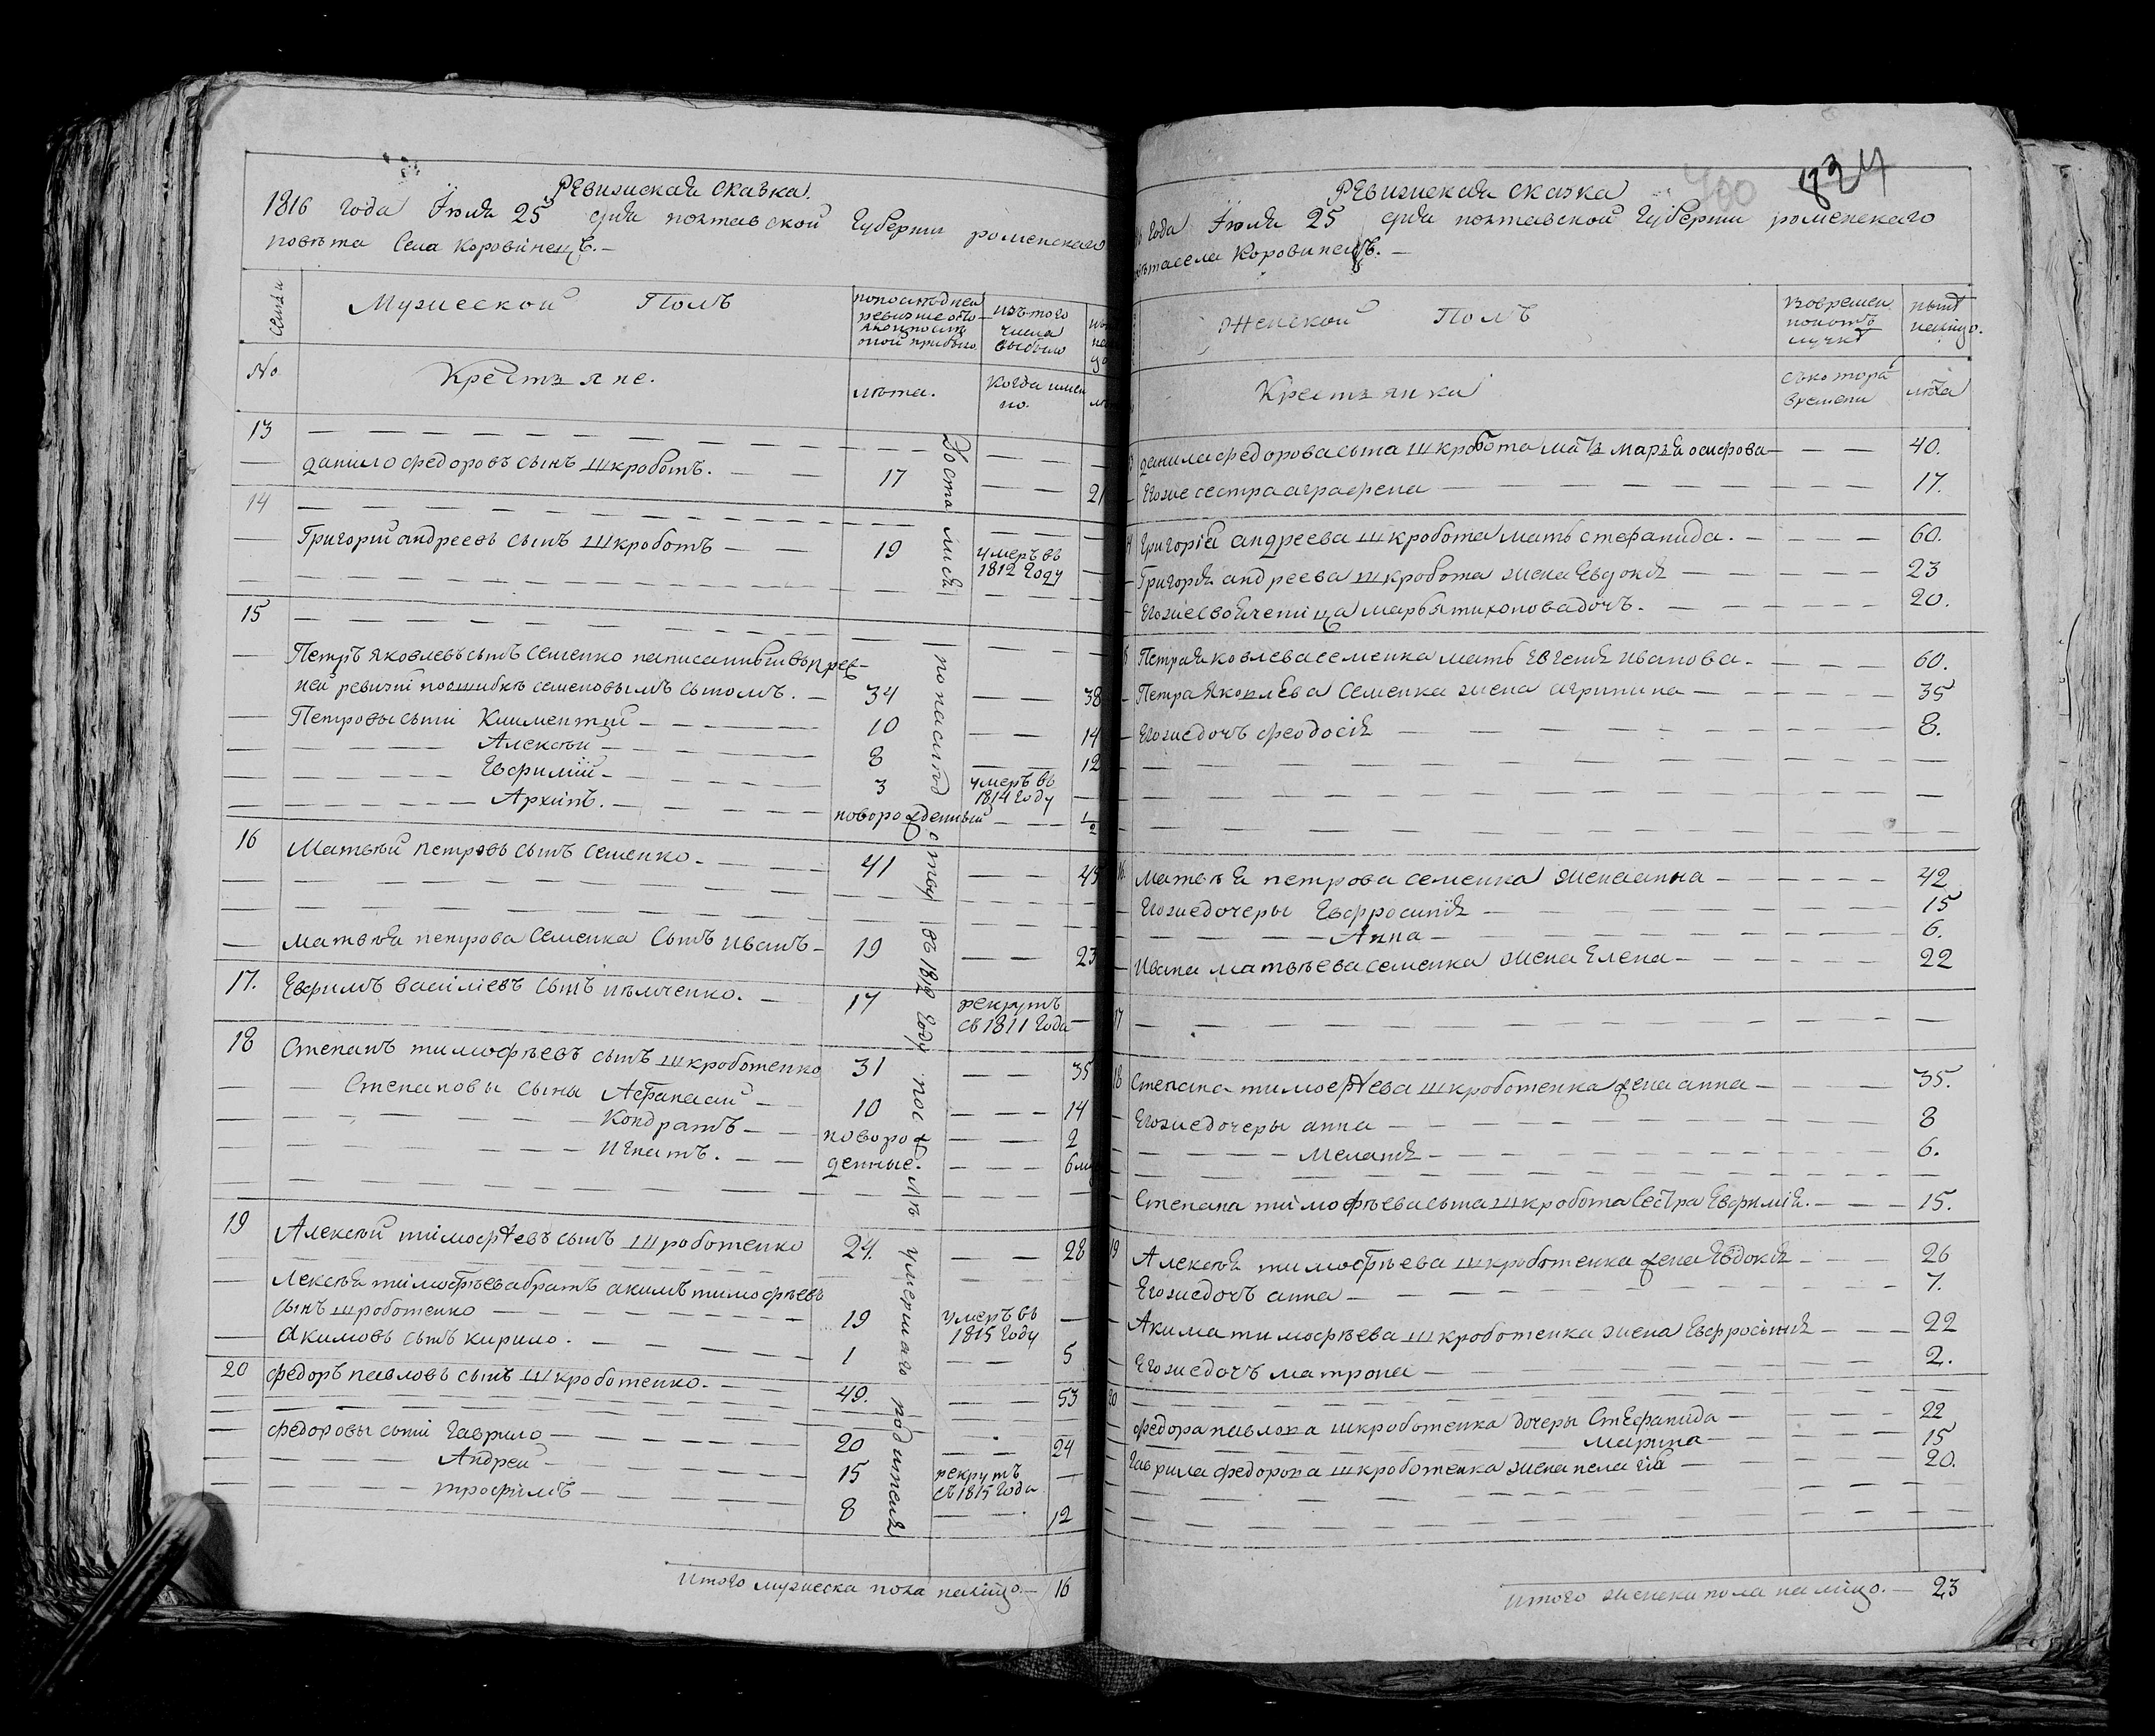 Ревизиская сказка.
1816 года Іюля 25 дня полтавской Губернии роменского
повѣта Села Коровинецъ. —
семьи
Мужеской Полъ
попослѣдней
ревизие состо-
яло и после
оной прибыло.
изътого
числа
выбыло
№
Крестьяне.
лѣта.
Когда имен
но.
13
данило федоровъ сынъ шкроботъ. — 17 — 21
14
Григорий андреевъ сынъ шкроботъ — 19 умеръ въ
1812 году
15
Петръ яковлевъ сынъ семенко написанный въ прев-
ней ревизиі поошибкѣ семеновымъ сыномъ. — 34 — 38
Петровы сыні Климентий — 10 — 14
Алексѣй — 8 — 12
Евфимій — 3 умеръ въ
1814 году
Архипъ. — новорожденный — ½
16 Матвѣй петровъ сынъ семенко. — 41 — 45
матвѣя петрова семенка сынъ иванъ — 19 — 23
17. Евфимъ василіевъ сынъ нѣмченко. — 17 рекрутъ
съ 1811 года —
18 Степанъ тимофѣевъ сынъ шкроботенко 31 — 35
Степановы сыны Афанасий — 10 — 14
Кондратъ — новорож — 2
игнатъ. — денные. — 6 м
19 Алексѣй тімофѣевъ сынъ шкроботенко 24. — 28
лексѣя тімофѣева братъ акимъ тимофѣевъ
сынъ шроботенко — 19 умеръ въ
1815 году —
акимовъ сынъ кирило. — 1 — 5
20 федоръ павловъ сынъ шкроботенко. — 49. — 53
федоровы сыні гаврило — 20 — 24
Андрей — 15 рекрутъ
съ 1815 года —
трофимъ — 8 — 12
Достался по наслѣдству въ 1812 году послѣ умершаго родителя
Итого мужеска пола налицо. — 16
400 824
Ревизиская сказка
года Іюля 25 дня полтавской Губернии роменскаго
села Коровинецъ. —
Женской Полъ
вовремен
ной отъ
лучкѣ
нынѣ
налицо.
Крестьянки
съкотора
времени
лѣта
данила федорова сына шкробота мать марья осифова — 40.
Егоже сестра аграфена — 17.
Григорія андреева шкробота мать стефанида. — 60.
Григорія андреева шкробота жена Евдокія — 23
Егоже своячениця марья тихонова дочъ. — 20.
Петра яковлева семенка мать Евгенія иванова. — 60.
Петра яковлева семенка жена агрипина — 35
Егоже дочъ феодосія — 8.
16 матвѣя петрова семенка жена анна — 42
Егоже дочеры Евфросинія — 15
Анна — 6.
ивана матвѣева семенка жена Елена — 22
17
18 Степана тимофѣева шкроботенка жена анна — 35.
Егоже дочеры анна — 8
меланія — 6.
Степана тімофѣева сына шкробота сестра Евфимія. — 15.
19 Алексѣя тимофѣева шкроботенка жена Евдокія — 26
Егоже дочъ анна — 7.
Акима тимофѣева шкроботенка жена Евфросинія — 22
Егоже дочъ матрона — 2.
20
федора павлова шкроботенка дочеры Стефанида — 22
марина — 15
гаврила федорова шкроботенка жена пелагія — 20.
итого женска пола налицо. — 23